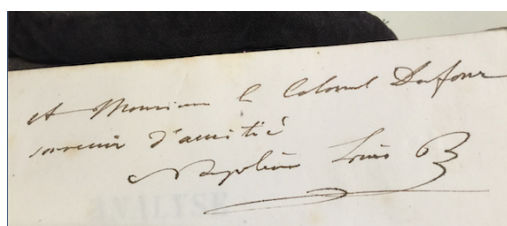 A Monsieur le Colonel Dufour
souvenir d'amitié
Napoléon Louis B
ANALYSE